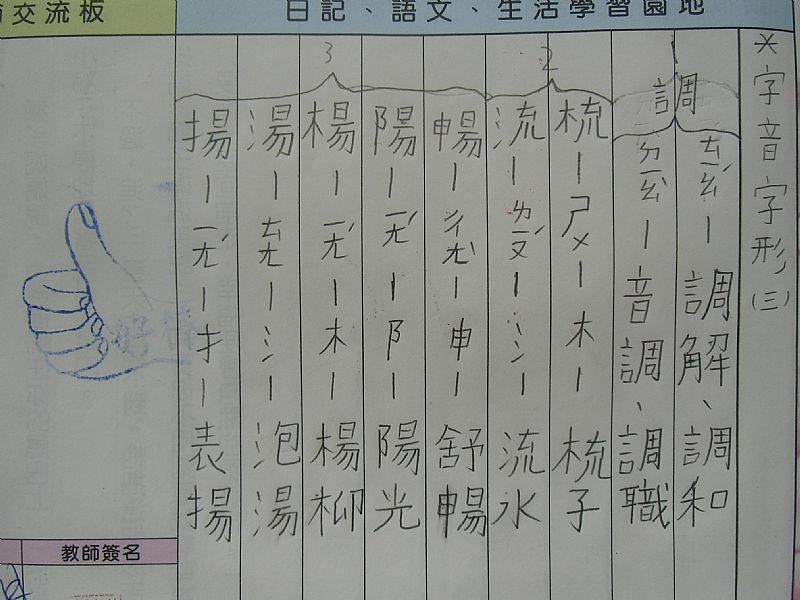 日記、語文、生活學習園地
交流板
*字音字形(三)
1
調
ㄊㄧㄠˊ—調解、調和
ㄉㄧㄠˋ—音調、調職
2
梳—ㄕㄨ—木—梳子
流—ㄌㄧㄡˊ—氵—流水
3
暢—ㄔㄤˋ—申—舒暢
陽—ㄧㄤˊ—阝—陽光
楊—ㄧㄤˊ—木—楊柳
湯—ㄊㄤ—氵—泡湯
揚—ㄧㄤˊ—扌—表揚
好棒
教師簽名